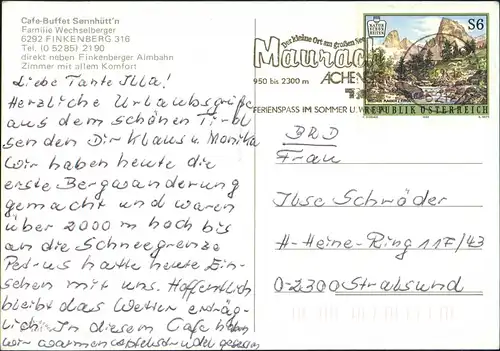 Cafe-Buffet Sennhütt'n
Familie Wechselberger
6292 FINKENBERG 316
Tel. (0 52 85) 21 90
direkt neben Finkenberger Almbahn
Zimmer mit allem Komfort
Liebe Tante Illa!
Herzliche Urlaubsgrüße
aus dem schönen Tirol
senden Dir Klaus u. Monika
Wir haben heute die
erste Bergwanderung
gemacht und waren
über 2000 m hoch bis
an die Schneegrenze
Petrus hatte heute Ein-
sehen mit uns. Hoffentlich
bleibt das Wetter erträg-
lich. In diesem Cafe haben
wir warmen Apfelstrudel gegessen
Der kleine Ort am großen
Maurach
ACHENSEE
950 bis 2300 m
FERIENSPASS IM SOMMER U.
NATUR
S6
REPUBLIK ÖSTERREICH
BRD
Frau
Ilse Schröder
H-Heine-Ring 117/43
0-2300 Stralsund